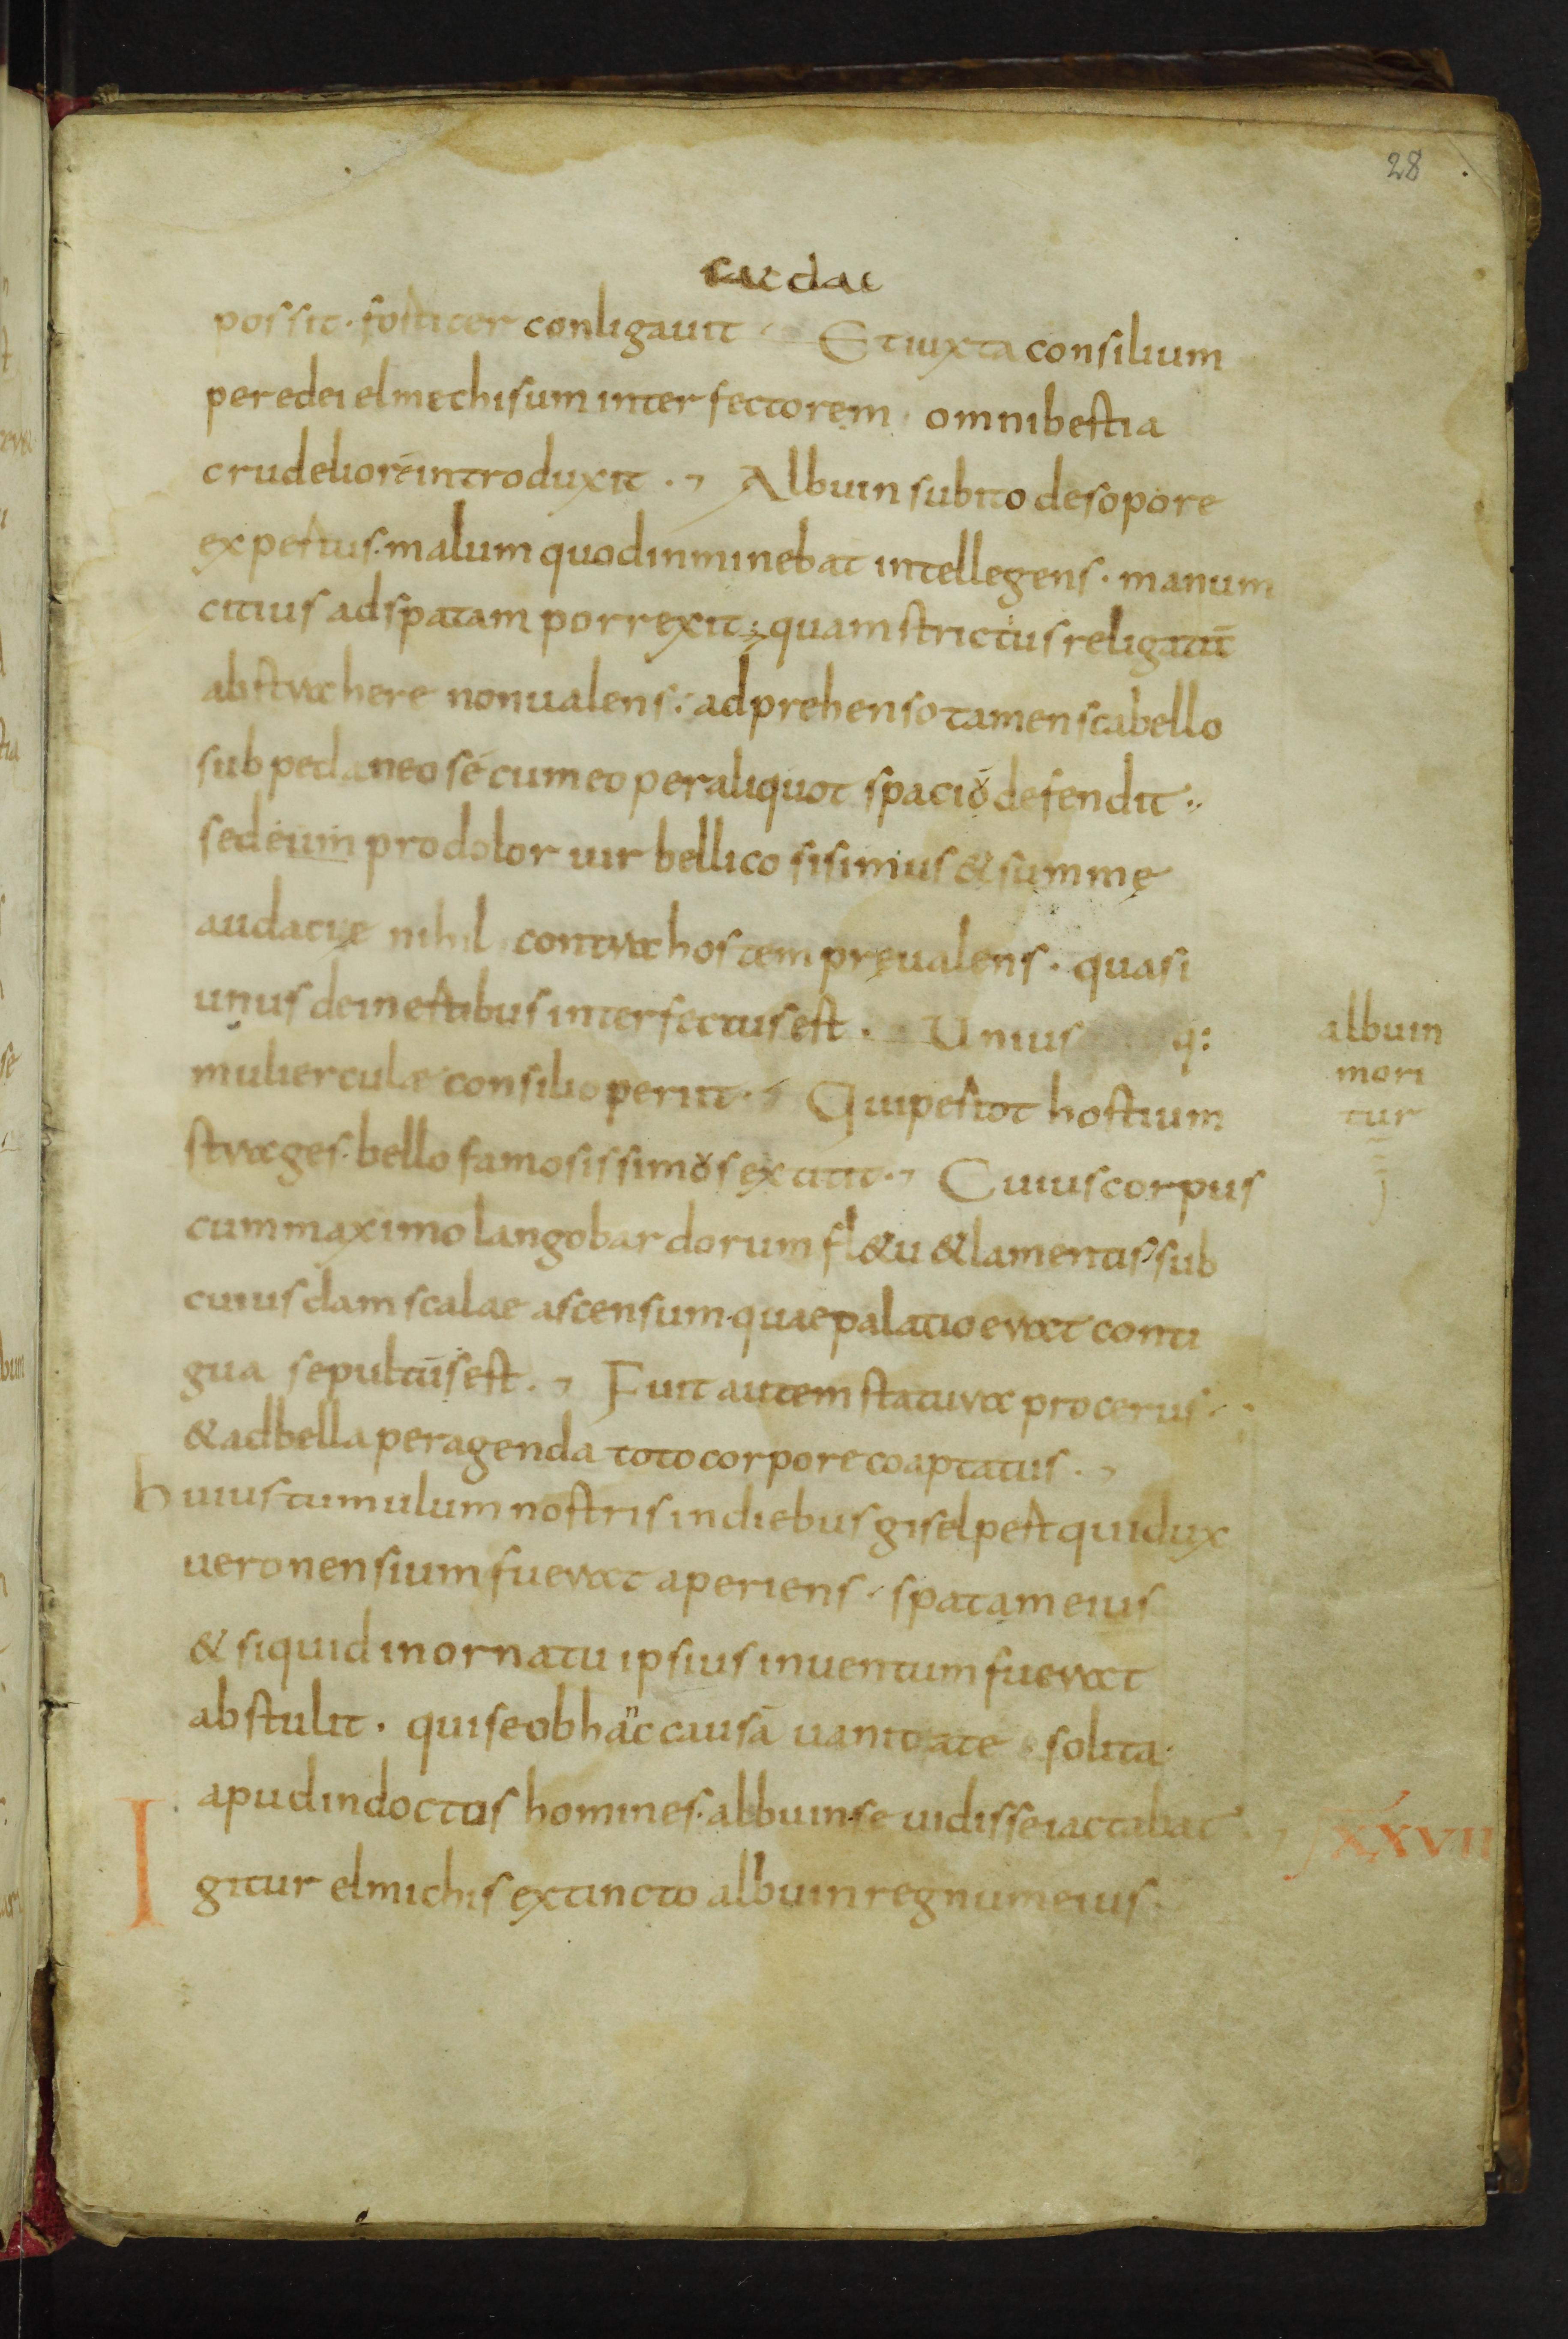 28
possit· fortiter conligauit· Et iuxta consilium
peredei elmechis um interfectorem· omni bestia
crudeliorē introduxit· Albuin subito de sopore
expertus· malum quod inminebat intellegens· manum
citius ad spatam porrexit; quam strictius religatā
abstrahere non ualens; adprehenso tamen scabello
subpedaneo se cum eo per aliquot spaciō defendit·
sed eum pro dolor uir bellicosisimus & summę
audacię nihil contra hostem pręualens· quasi
unus de inertibus interfectus est· Unius q:
mulierculae consilio periit· Qui per tot hostium
strages· bello famosissimos extitit· Cuius corpus
cum maximo langobardorum fl&u & lamentis sub
cuiusdam scalae ascensum· quae palatio erat conti
gua sepultūs est· Fuit autem statura procerus·
& ad bella peragenda toto corpore coaptatus·
huius tumulum nostris in diebus giselpert qui dux
ueronensium fuerat aperiens· spatam eius
& si quid in ornatu ipsius inuentum fuerat
abstulit· qui se ob hac causā uanitate solita
apud indoctos homines· albuin se uidisse iactabat
Igitur elmichis extincto albuin regnum eius·
albuin
mori
tur
XXVII